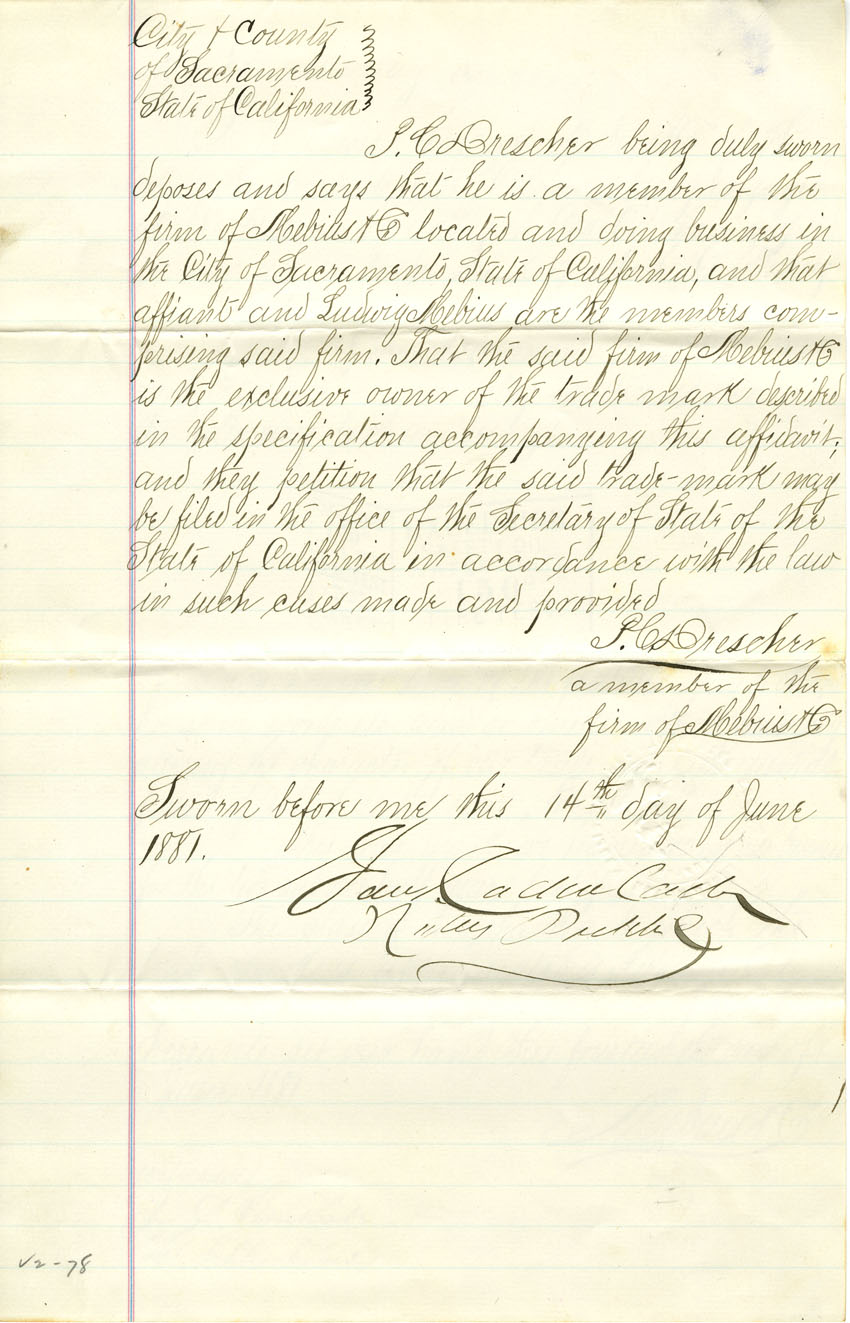 City & County
of Sacramento
State of California
P. C. Drescher being duly sworn
deposes and says that he is a member of the
firm of Mebius & Co located and doing business in
the City of Sacramento, State of California, and that
affiant and Ludwig Mebius are the members com-
prising said firm. That the said firm of Mebius & Co
is the exclusive owner of the trade mark described
in the specification accompanying this affidavit;
and they petition that the said trade-mark may
be filed in the office of the Secretary of State of the
State of California in accordance with the law
in such cases made and provided
P. C. Drescher
a member of the
firm of Mebius & Co
Sworn before me this 14th day of June
1881.
Notary Public
V2-78